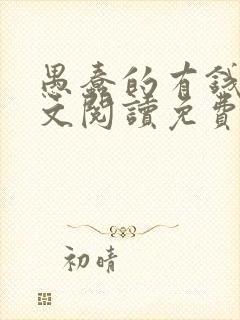 愚蠢的有錢
文閱讀免費
初晴